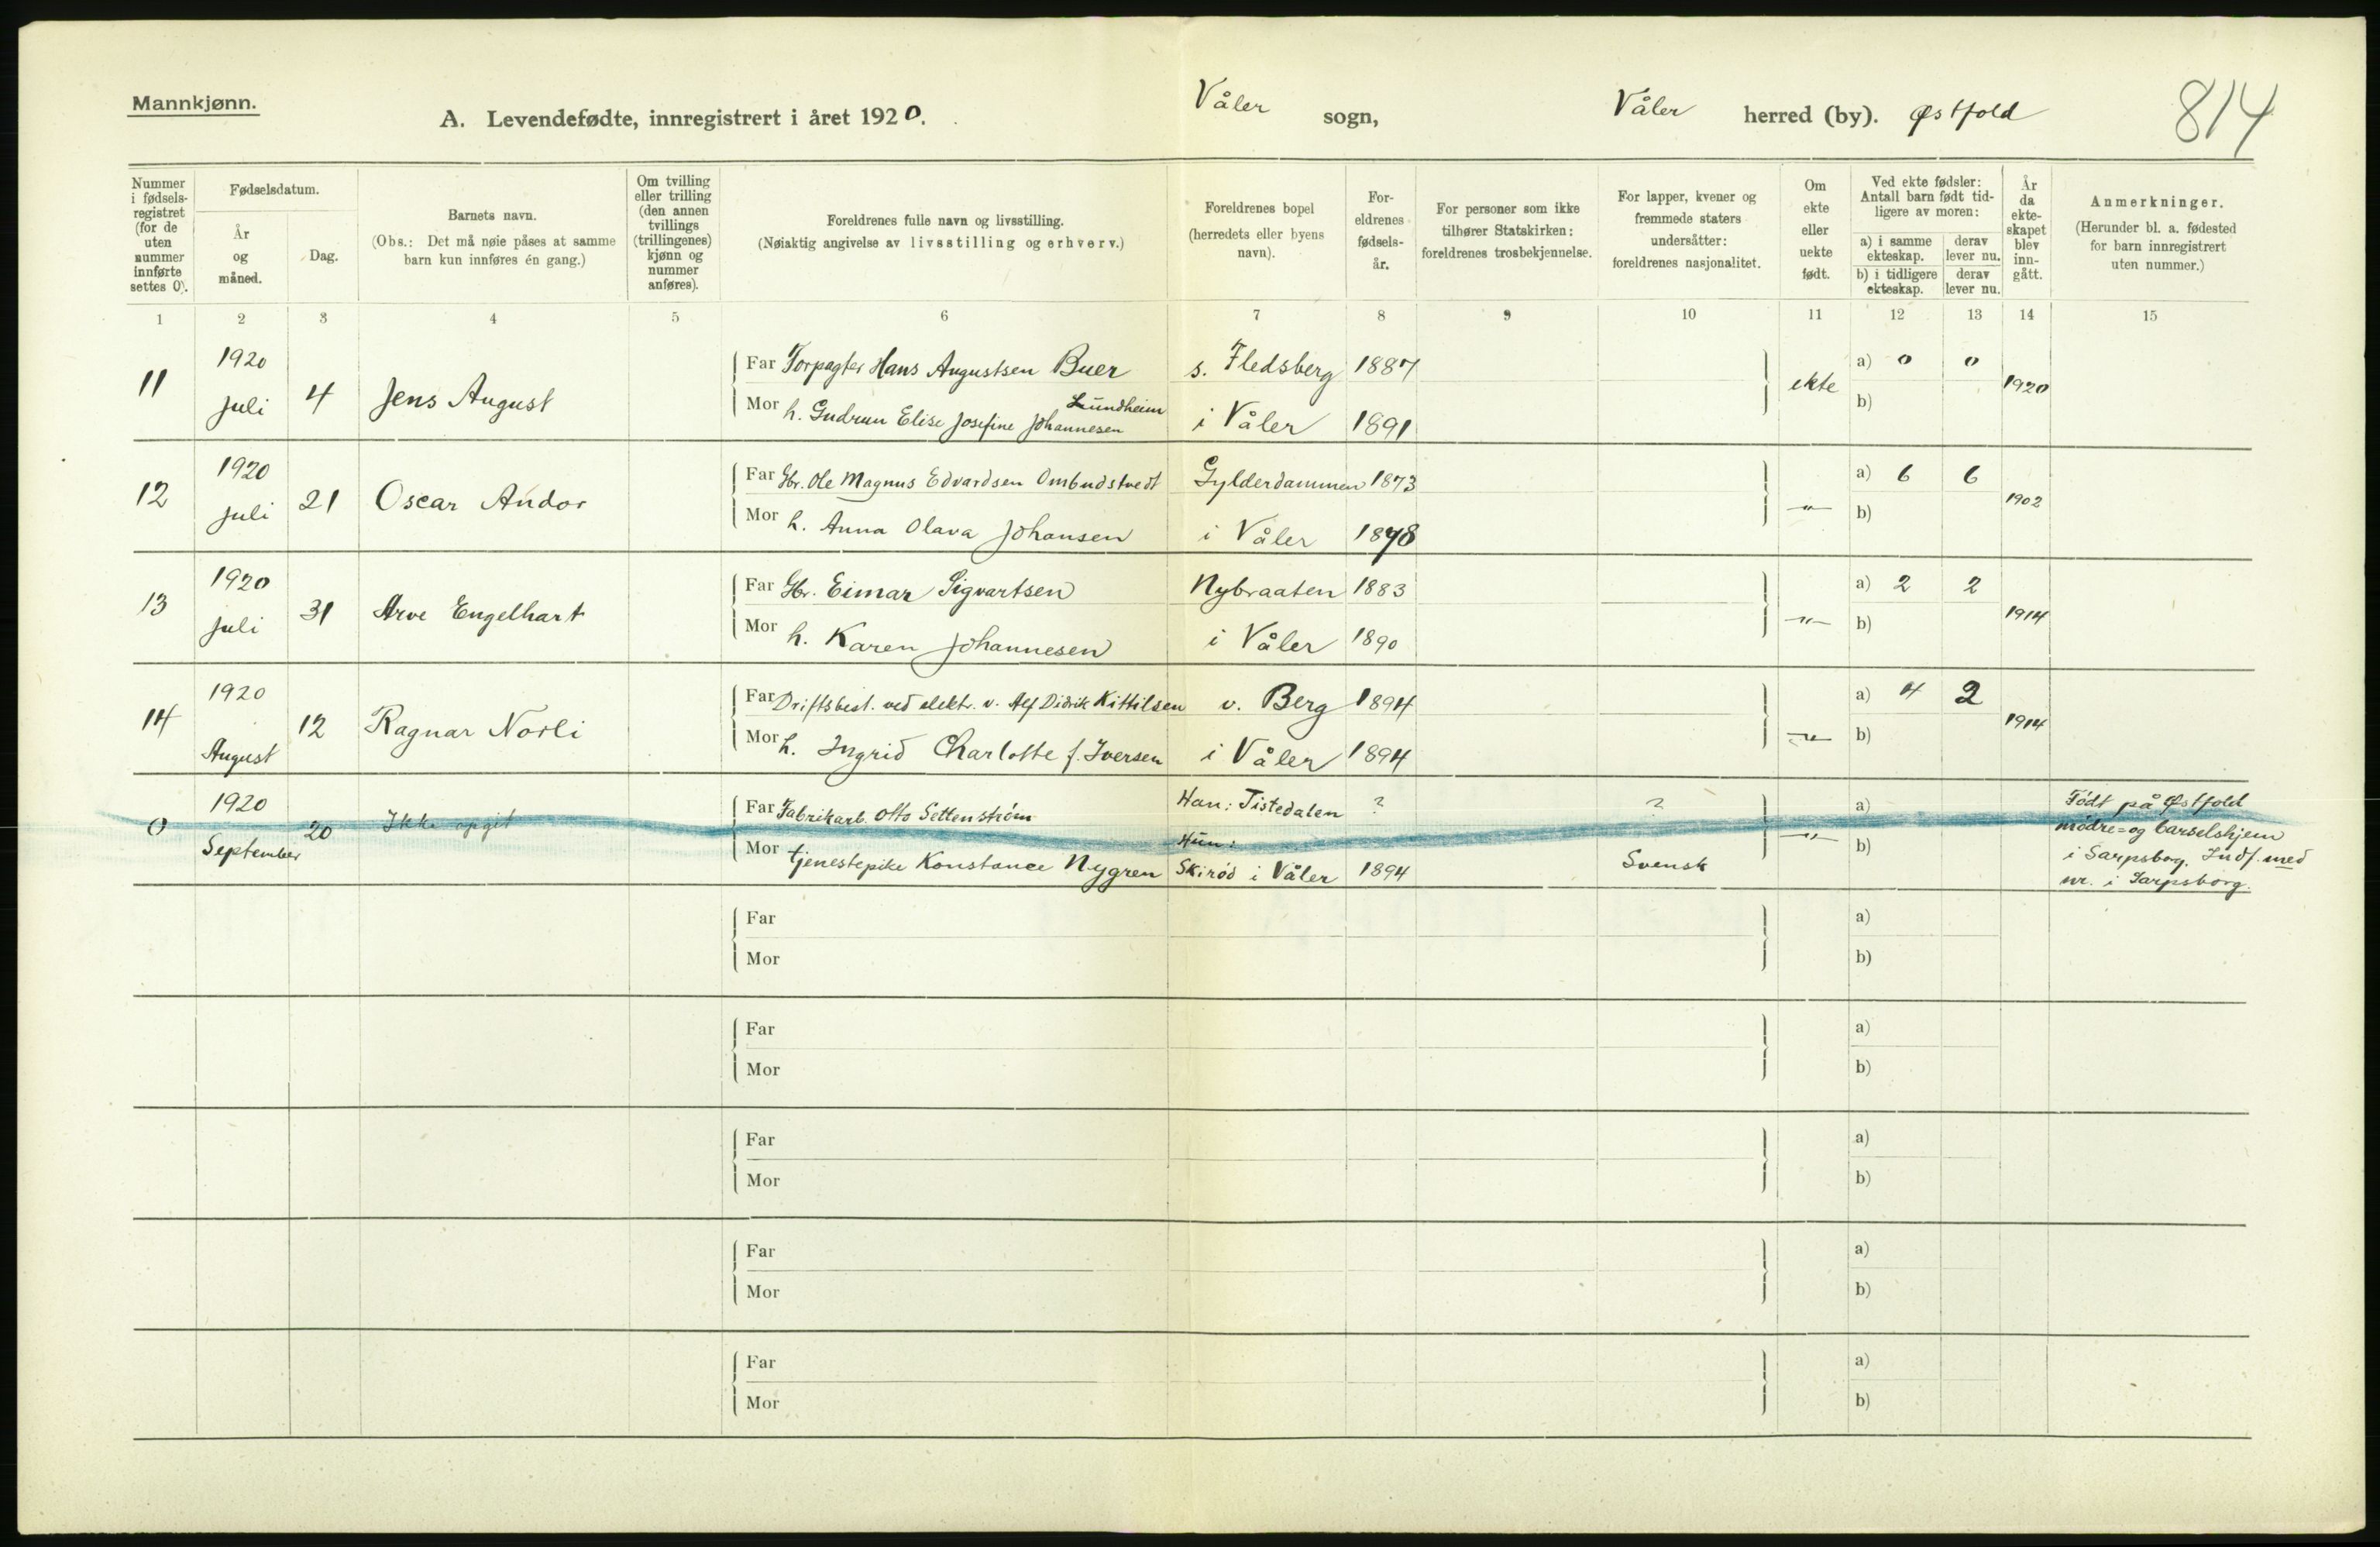 Mannkjønn.
A. Levendefødte, innregistrert i året 1920.
Våler sogn, Våler herred (by). Østfold
814
Nummer i fødsels-registret (for de uten nummer innførte settes 0).
Fødselsdatum.
År og måned.
Dag.
Barnets navn.
(Obs.: Det må nøie påses at samme barn kun innføres én gang.)
Om tvilling eller trilling (den annen tvillings (trillingenes) kjønn og nummer anføres).
Foreldrenes fulle navn og livsstilling.
(Nøiaktig angivelse av livsstilling og erhverv.)
Foreldrenes bopel (herredets eller byens navn).
For-eldrenes fødsels-år.
For personer som ikke tilhører Statskirken: foreldrenes trosbekjennelse.
For lapper, kvener og fremmede staters undersåtter: foreldrenes nasjonalitet.
Om ekte eller uekte født.
Ved ekte fødsler: Antall barn født tid-ligere av moren:
a) i samme ekteskap. derav lever nu.
b) i tidligere ekteskap. derav lever nu.
År da ekte-skapet blev inn-gått.
Anmerkninger.
(Herunder bl. a. fødested for barn innregistrert uten nummer.)
1 2 3 4 5 6 7 8 9 10 11 12 13 14 15
11 1920 juli 4 Jens August
Far Forpagter Hans Augustsen Buer s. Fledsberg 1887 ekte a) 0 0 1920
Lundheim
Mor h. Gudrun Elise Josefine Johannesen i Våler 1891 b)
12 1920 juli 21 Oscar Andor
Far Gbr. Ole Magnus Edvardsen Ombudstvedt Gylderdammen 1873 -"- a) 6 6 1902
Mor h. Anna Olava Johansen i Våler 1878 b)
13 1920 juli 31 Arve Engelhart
Far Gbr. Eimar Sigvartsen Nybraaten 1883 -"- a) 2 2 1914
Mor h. Karen Johannesen i Våler 1890 b)
14 1920 August 12 Ragnar Norli
Far Driftsbest. ved elektr. v. Alf Didrik Kittilsen v. Berg 1894 -"- a) 4 2 1914
Mor h. Ingrid Charlotte f. Iversen i Våler 1894 b)
0 1920 September 20 Ikke opgit
Far Fabrikarb. Otto Settenstrøm Han: Tistedalen ? ? -"- a)
Hun:
Mor tjenestepike Konstance Nygren Skirød i Våler 1894 Svensk b)
Født på Østfold
mødre= og barselshjem
i Sarpsborg. Indf. med
nr. i Sarpsborg.
Far a)
Mor b)
Far a)
Mor b)
Far a)
Mor b)
Far a)
Mor b)
Far a)
Mor b)